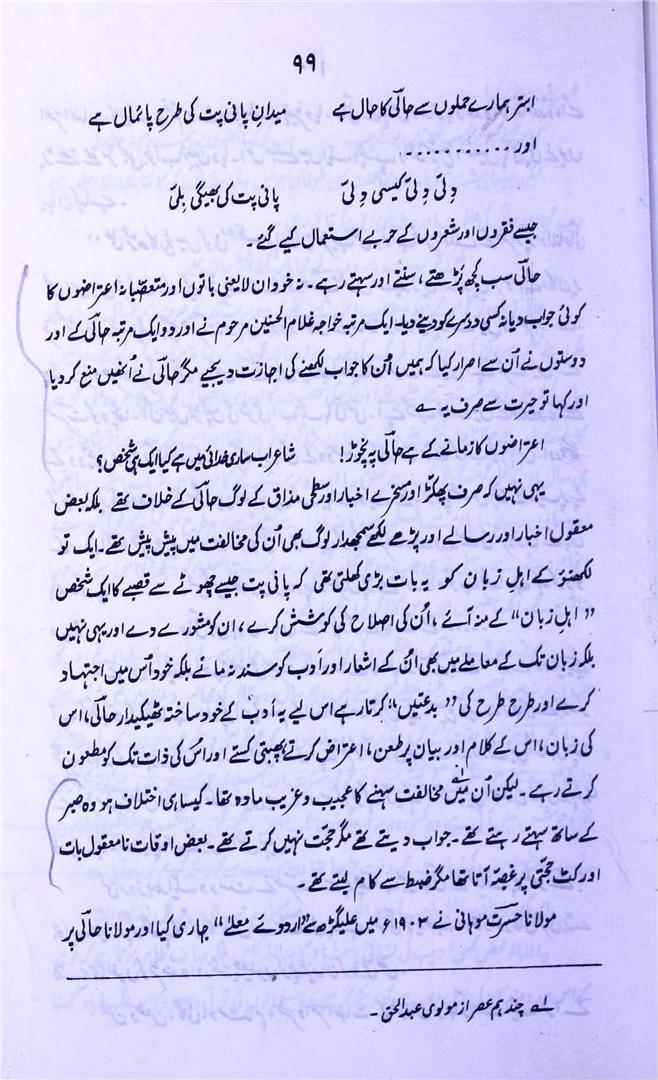 ۹۹
ابتر ہمارے حملوں سے حالیؔ کا حال ہے میدانِ پانی پت کی طرح پائمال ہے
اور ...........
دِلّی دِلّی کیسی دِلّی پانی پت کی بھیگی بِلّی
جیسے فقروں اور شعروں کے حربے استعمال کیے گئے۔
حالیؔ سب کچھ پڑھتے، سنتے اور سہتے رہے۔ نہ خود ان لایعنی باتوں اور متعصّبانہ اعتراضوں کا
کوئی جواب دیا نہ کسی دوسرے کو دینے دیا۔ ایک مرتبہ خواجہ غلام الحسنین مرحوم نے اور دو ایک مرتبہ حالیؔ کے اور
دوستوں نے اُن سے اصرار کیا کہ ہمیں اُن کا جواب لکھنے کی اجازت دیجیے مگر حالیؔ نے اُنھیں منع کر دیا
اور کہا تو حیرت سے صرف یہ ؎
اعتراضوں کا زمانے کے ہے حالیؔ پہ نچوڑ! شاعر اب ساری خدائی میں ہے کیا ایک ہی شخص؟
یہی نہیں کہ صرف پھکڑ اور مسخرے اخبار اور سطحی مذاق کے لوگ حالیؔ کے خلاف تھے بلکہ بعض
معقول اخبار اور رسالے اور پڑھے لکھے سمجھدار لوگ بھی اُن کی مخالفت میں پیش پیش تھے۔ ایک تو
لکھنؤ کے اہلِ زبان کو یہ بات بڑی کھلتی تھی کہ پانی پت جیسے چھوٹے سے قصبے کا ایک شخص
”اہلِ زبان“ کے منہ آئے، اُن کی اصلاح کی کوشش کرے، ان کو مشورے دے اور یہی نہیں
بلکہ زبان تک کے معاملے میں بھی اُن کے اشعار اور اَدب کو سند نہ مانے بلکہ خود اُس میں اجتہاد
کرے اور طرح طرح کی ”بدعتیں“ کرتا رہے اس لیے یہ اَدب کے خود ساختہ ٹھیکیدار حالیؔ، اس
کی زبان، اس کے کلام اور بیان پر طعن، اعتراض کرتے پھبتی کستے اور اُس کی ذات تک کو مطعون
کرتے رہے۔ لیکن اُن میں مخالفت سہنے کا عجیب و غریب مادہ تھا۔ کیسا ہی اختلاف ہو وہ صبر
کے ساتھ سہتے رہتے تھے۔ جواب دیتے تھے مگر حجّت نہیں کرتے تھے۔ بعض اوقات نامعقول بات
اور کٹ حجّتی پر غصّہ آتا تھا مگر ضبط سے کام لیتے تھے۔
مولانا حسرتؔ موہانی نے ۱۹۰۳ء میں علیگڑھ سے ”اردوئے معلّےٰ“ جاری کیا اور مولانا حالیؔ پر
؎۱ چند ہم عصر از مولوی عبدالحق۔